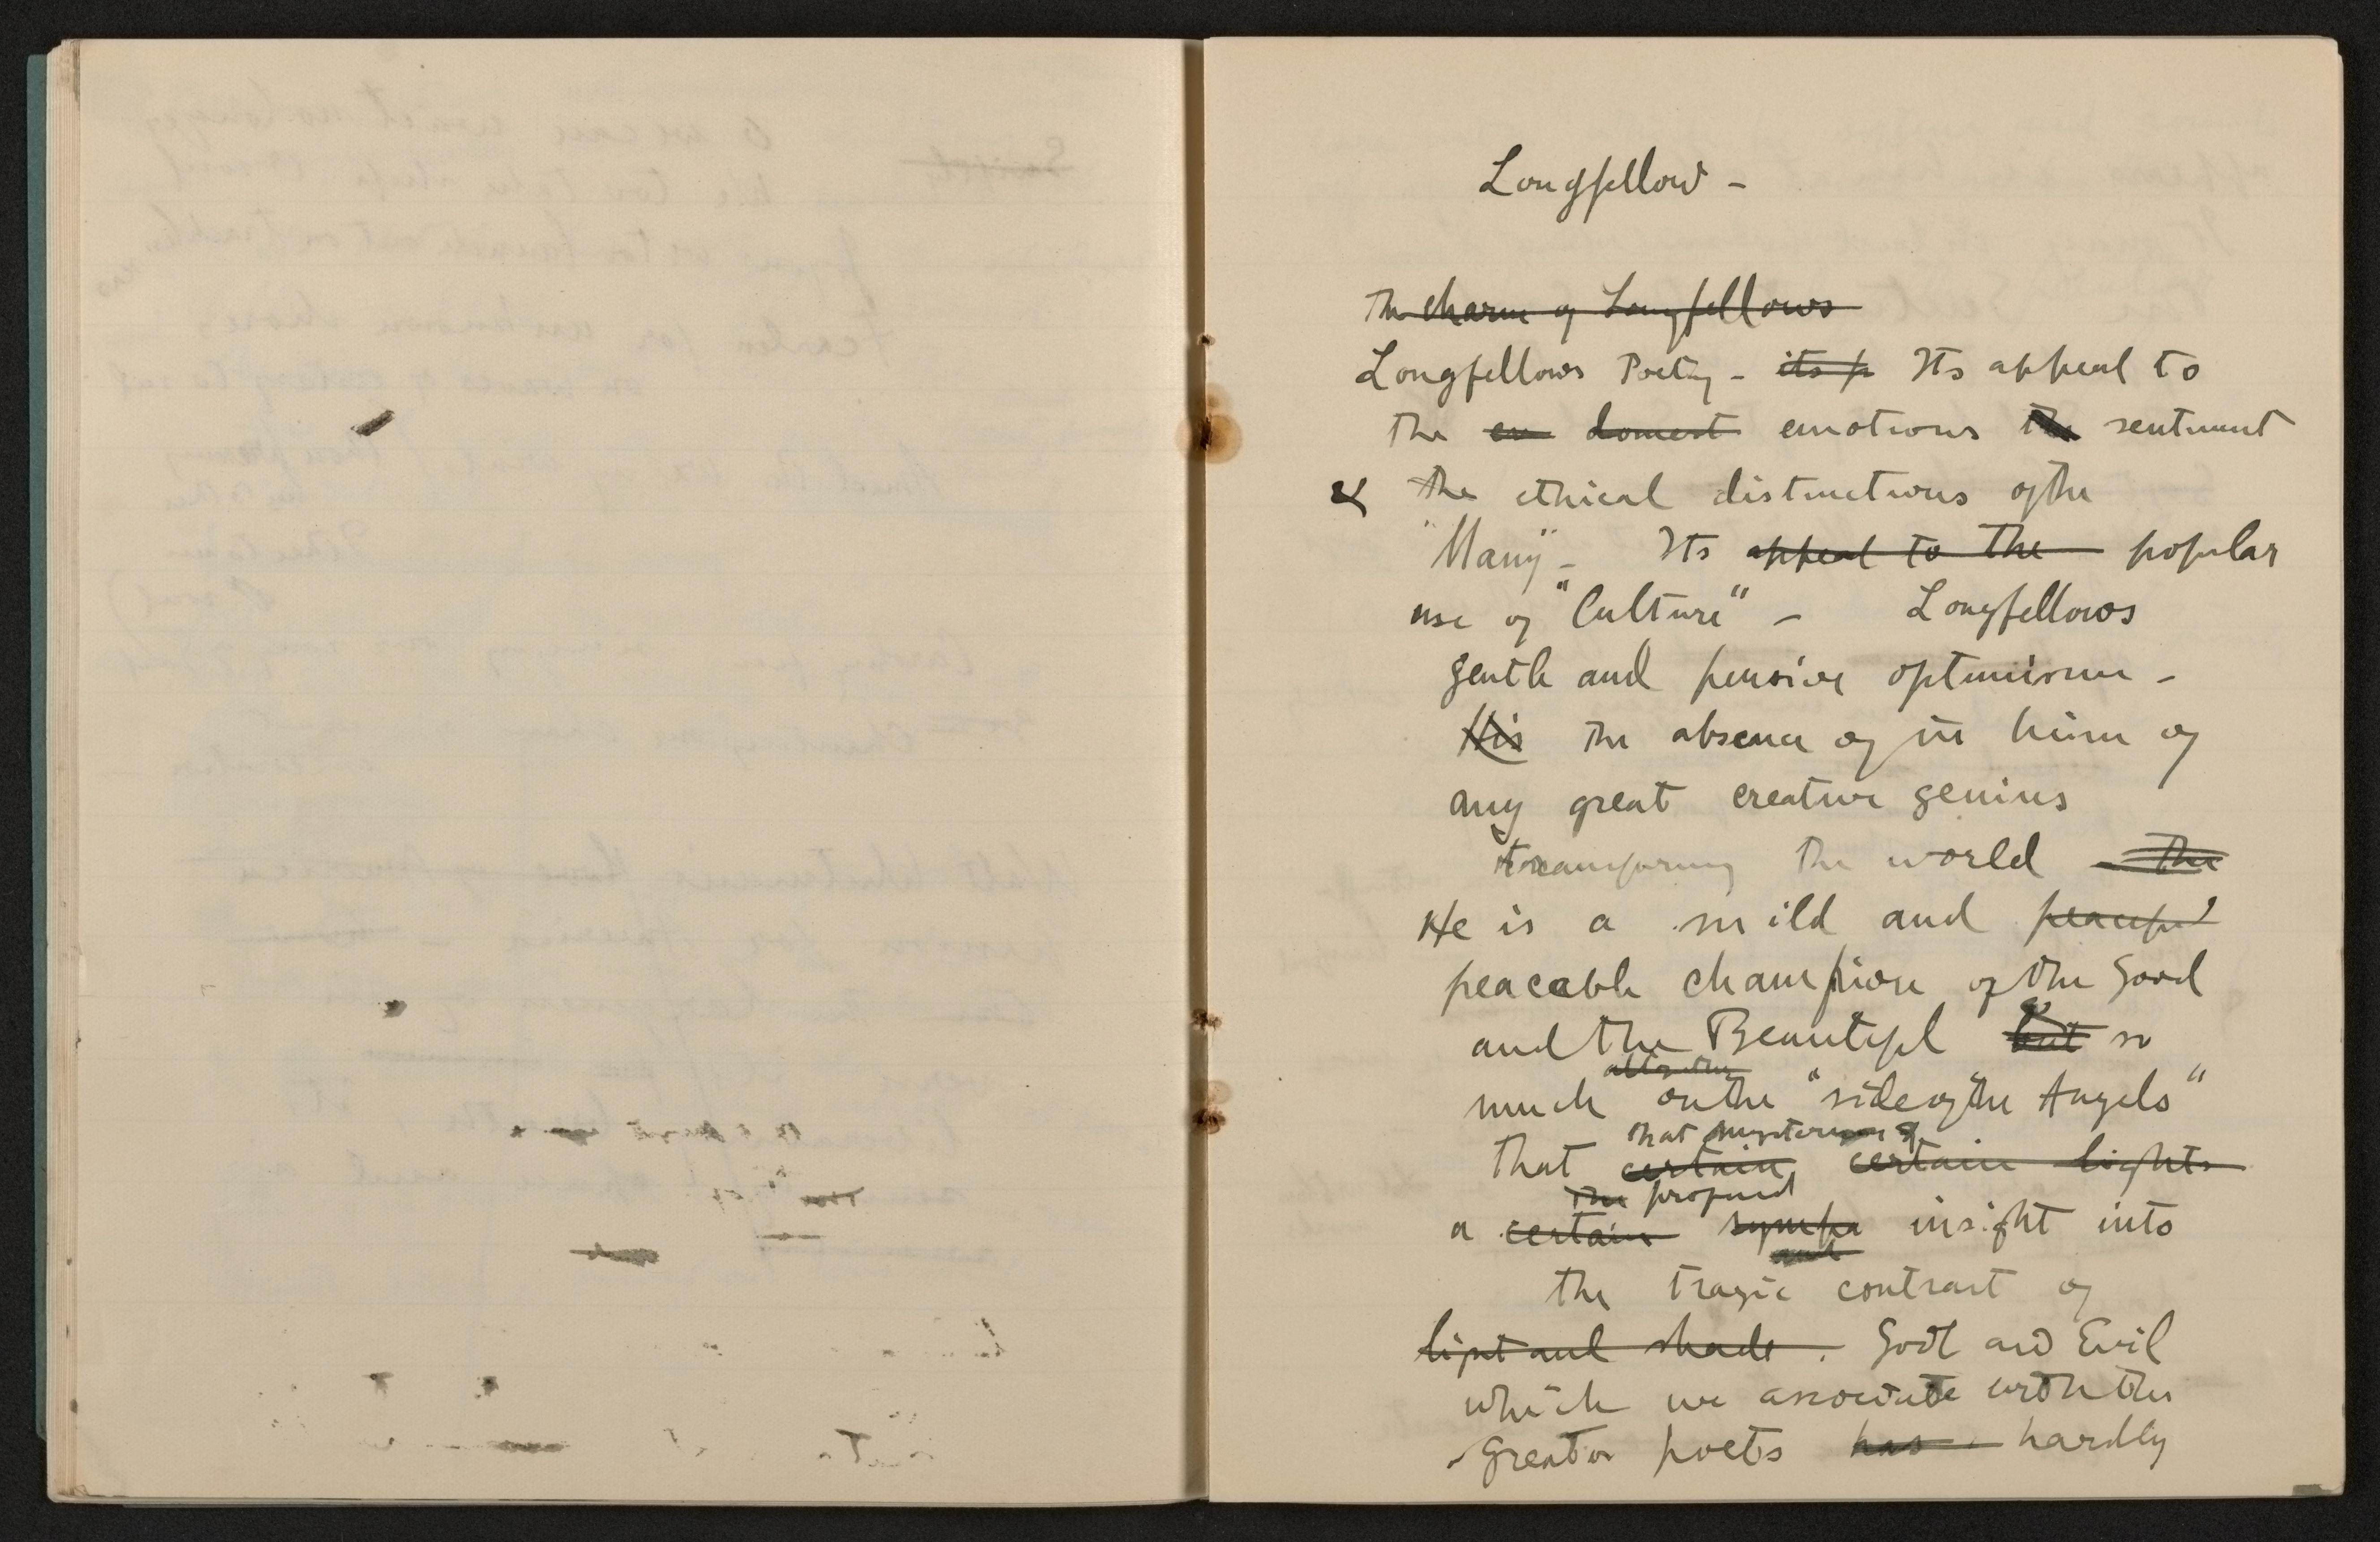 Longfellow -
The charm of Longfellows
Longfellows Poetry - its p Its appeal to
the em domest emotions the sentiment
& the ethical distinctions of the
"Many" - Its appeal to the popular
use of "Culture" - Longfellows
gentle and pensive optimism -
His The absence of in him of
any great creative genius
transforming the world The
He is a mild and peaceful
peaceable champion of the Good
and the Beautiful but so
much on the "side of the Angels"
that mysterious
that certain certain lights
the profound
a certain sympa insight into
and
the tragic contrast of
light and shade. Good and Evil
which we associate with the
greater poets has hardly